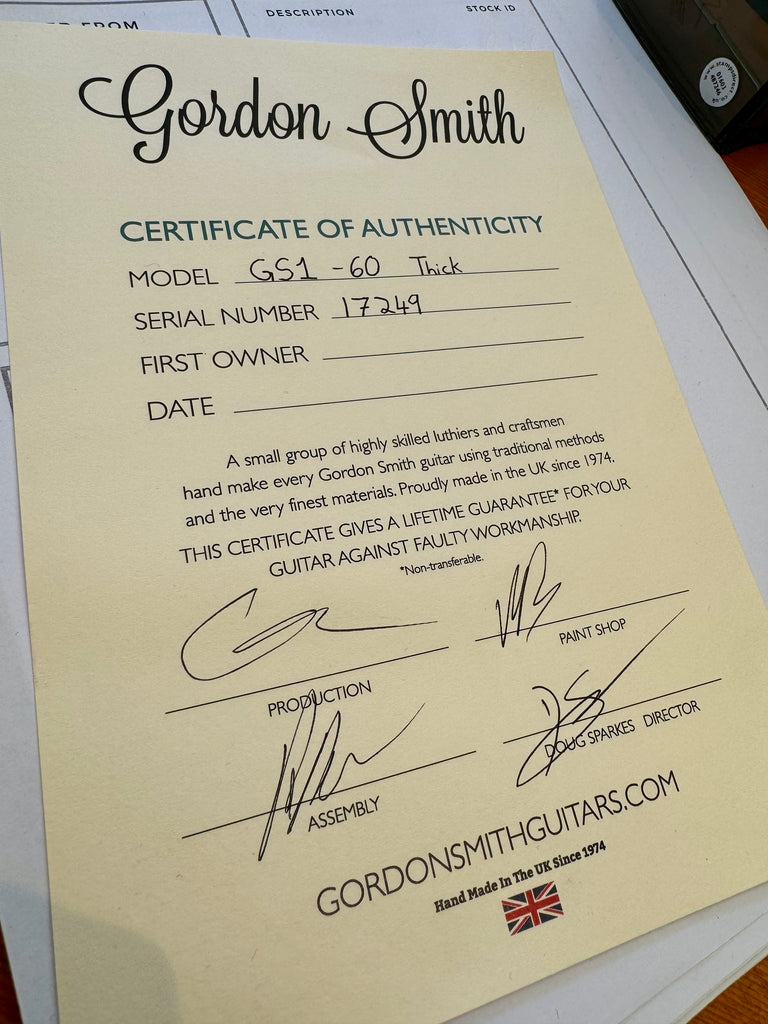 FROM
DESCRIPTION
STOCK ID
Gordon Smith
CERTIFICATE OF AUTHENTICITY
MODEL GS1 - 60 Thick
SERIAL NUMBER 17249
FIRST OWNER
DATE
A small group of highly skilled luthiers and craftsmen
hand make every Gordon Smith guitar using traditional methods
and the very finest materials. Proudly made in the UK since 1974.
THIS CERTIFICATE GIVES A LIFETIME GUARANTEE* FOR YOUR
GUITAR AGAINST FAULTY WORKMANSHIP.
*Non-transferable.
PAINT SHOP
PRODUCTION
DOUG SPARKES DIRECTOR
ASSEMBLY
GORDONSMITHGUITARS.COM
Hand Made In The UK Since 1974